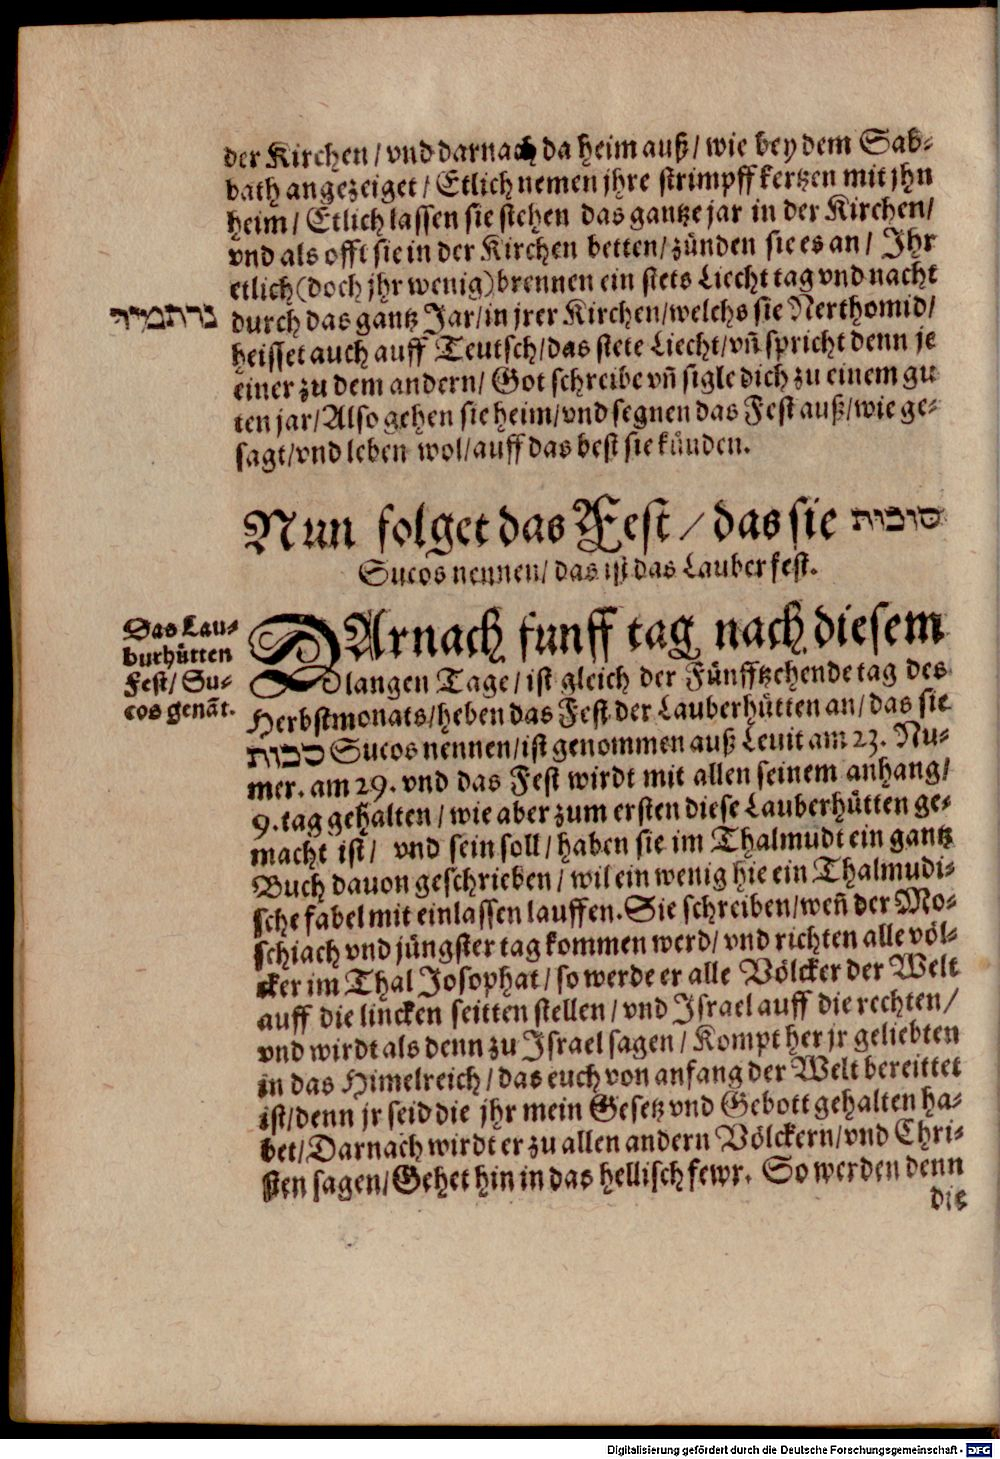 der Kirchen / vnd darnach da heim auß / wie bey dem Sab-
bath angezeiget / Etlich nemen jhre strimpffkertzen mit jhn
heim / Etlich lassen sie stehen das gantze jar in der Kirchen /
vnd als offt sie in der Kirchen betten / zünden sie es an / Ihr
etlich (doch jhr wenig) brennen ein stets Liecht tag vnd nacht
נרתמיד
durch das gantz Jar / in jrer Kirchen / welchs sie Nerthomid /
heisset auch auff Teutsch / das stete Liecht / vñ spricht denn je
einer zu dem andern / Got schreibe vñ sigle dich zu einem gu
ten jar / Also gehen sie heim / vnd segnen das Fest auß / wie ge-
sagt / vnd leben wol / auff das best sie künden.
Nun folget das Fest / das sie סוכות
Sucos nennen / das ist das Lauberfest.
Das Lau-
burhütten
Fest / Su-
cos genãt.
DArnach funff tag nach diesem
langen Tage / ist gleich der Fünfftzehende tag des
Herbstmonats / heben das Fest der Lauberhütten an / das sie
סכות Sucos nennen / ist genommen auß Leuit am 23. Nu-
mer. am 29. vnd das Fest wirdt mit allen seinem anhang /
9. tag gehalten / wie aber zum ersten diese Lauberhütten ge-
macht ist / vnd sein soll / haben sie im Thalmudt ein gantz
Buch dauon geschrieben / wil ein wenig hie ein Thalmudi-
sche fabel mit einlassen lauffen. Sie schreiben / weñ der Mo-
schiach vnd jüngster tag kommen werd / vnd richten alle völ-
cker im Thal Josophat / so werde er alle Völcker der Welt
auff die lincken seitten stellen / vnd Israel auff die rechten /
vnd wirdt als denn zu Israel sagen / Kompt her jr geliebten
in das Himelreich / das euch von anfang der Welt bereittet
ist / denn jr seid die jhr mein Gesetz vnd Gebott gehalten ha-
bet / Darnach wirdt er zu allen andern Völckern / vnd Chri-
sten sagen / Gehet hin in das hellisch fewr. So werden denn
die
Digitalisierung gefördert durch die Deutsche Forschungsgemeinschaft - DFG